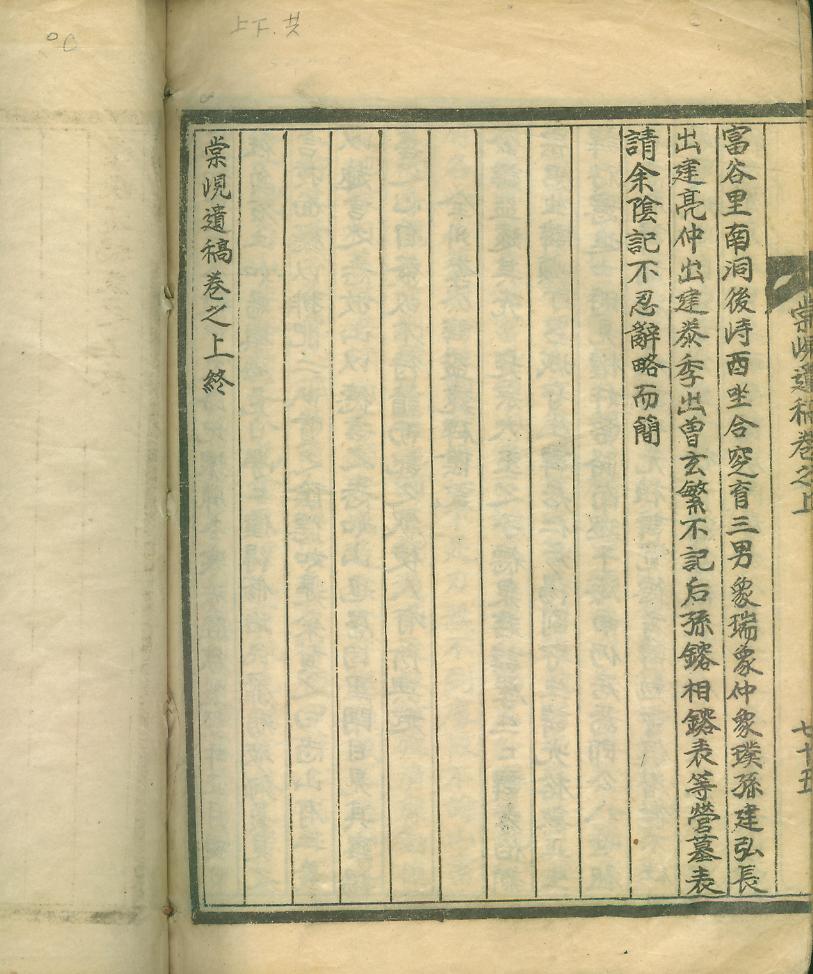 上下共
棠峴遺稿卷之上
七十五
富谷里南洞後峙酉坐合窆育三男象瑞象仲象璞孫建弘長
出建亮仲出建泰季出曾玄繁不記后孫鎔相鎔表等營墓表
請余陰記不忍辭略而簡
棠峴遺稿卷之上終